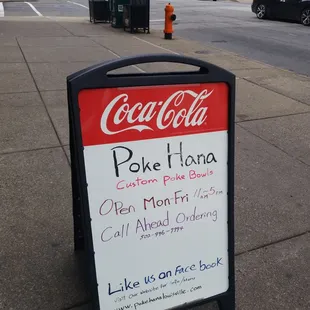 Coca-Cola
Poke Hana
Custom Poke Bowls
Open Mon-Fri 11am-5pm
Call Ahead Ordering
Like us on Facebook
Visit Our Website for info/menu
www.pokehanalouisville.com